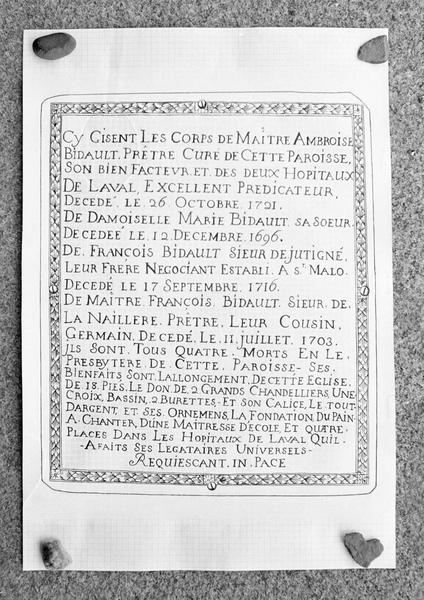 CY GISENT LES CORPS DE MAITRE AMBROISE
BIDAULT, PRÊTRE CURÉ DE CETTE PAROISSE,
SON BIEN FACTEVR. ET. DES DEUX HOPITAUX
DE LAVAL, EXCELLENT PREDICATEUR,
DECEDÉ, LE. 26 OCTOBRE. 1721.
DE DAMOISELLE MARIE BIDAULT. SA SOEUR.
DECEDEÉ LE. 12. DECEMBRE. 1696.
DE. FRANÇOIS BIDAULT SIEUR DE JUTIGNÉ,
LEUR FRERE NEGOCIANT ESTABLI. A ST MALO.
DECEDÉ LE 17 SEPTEMBRE. 1716.
DE MAITRE. FRANÇOIS. BIDAULT. SIEUR. DE.
LA NAILLERE. PRÊTRE, LEUR COUSIN,
GERMAIN, DECEDÉ. LE. 11. JUILLET. 1703.
JLS SONT. TOUS QUATRE. MORTS EN LE.
PRESBYTERE DE CETTE. PAROISSE - SES.
BIENFAITS SONT. LALLONGEMENT, DECETTE EGLISE.
DE 18. PIES, LE DON. DE. 2 GRANDS CHANDELLIERS, UNE
CROIX, BASSIN, 2 BURETTES - ET SON CALICE, LE TOUT
DARGENT, ET SES. ORNEMENS, LA FONDATION. DU PAIN
A. CHANTER, DÚNE MAITRESSE D'ECOLE, ET QUATRE.
PLACES DANS LES HOPITAUX DE LAVAL QUIL.
- AFAITS SES LEGATAIRES UNIVERSELS -
REQUIESCANT. IN. PACE